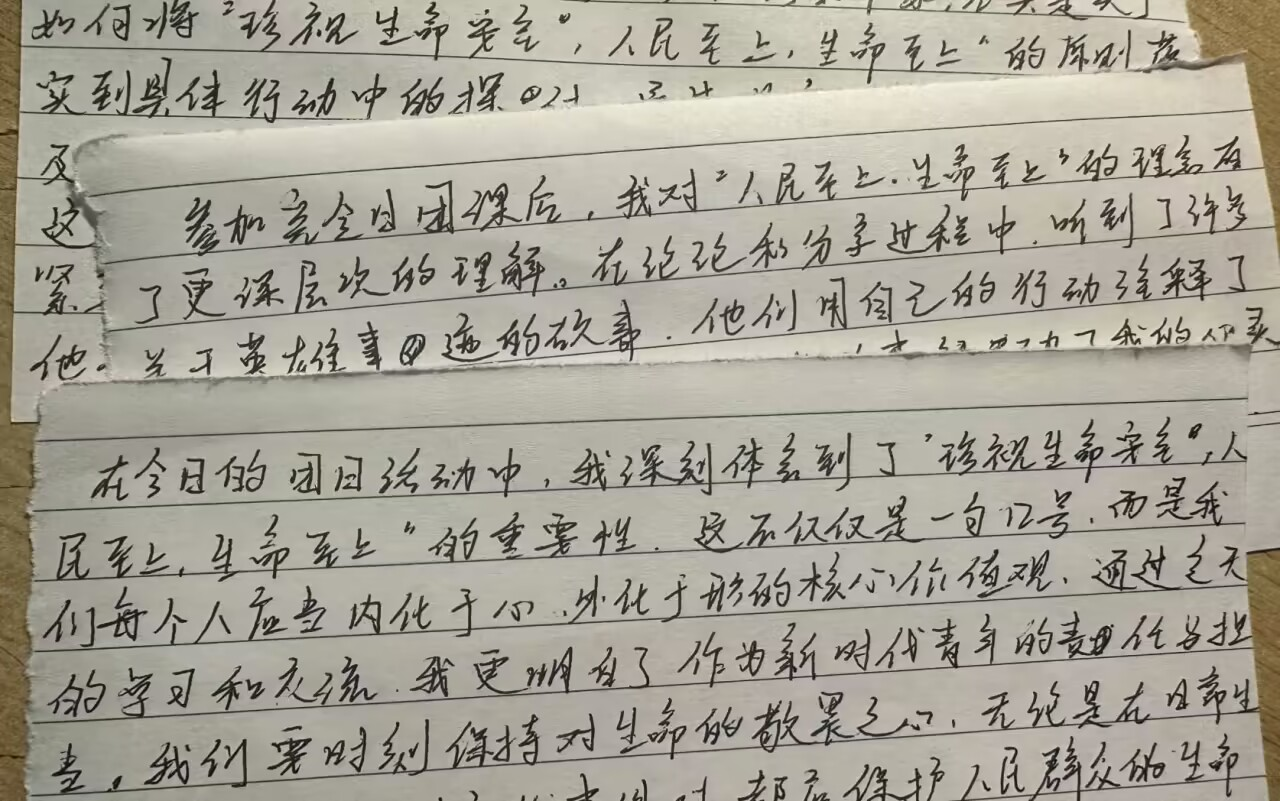 如何将“珍视生命安全”，人民至上，生命至上“的原则落
实到具体行动中的探
及
这
紧
他
参加完今日团课后，我对“人民至上、生命至上”的理念有
了更深层次的理解。在讨论和分享过程中，听到了许多
关于英雄事迹的故事，他们用自己的行动诠释了
在今日的团日活动中，我深刻体会到了“珍视生命安全”，人
民至上，生命至上“的重要性，这不仅仅是一句口号，而是我
们每个人应当内化于心、外化于形的核心价值观，通过这天
的学习和交流，我更明白了作为新时代青年的责任与担
当。我们要时刻保持对生命的敬畏之心，无论是在日常生
都应保护人民群众的生命